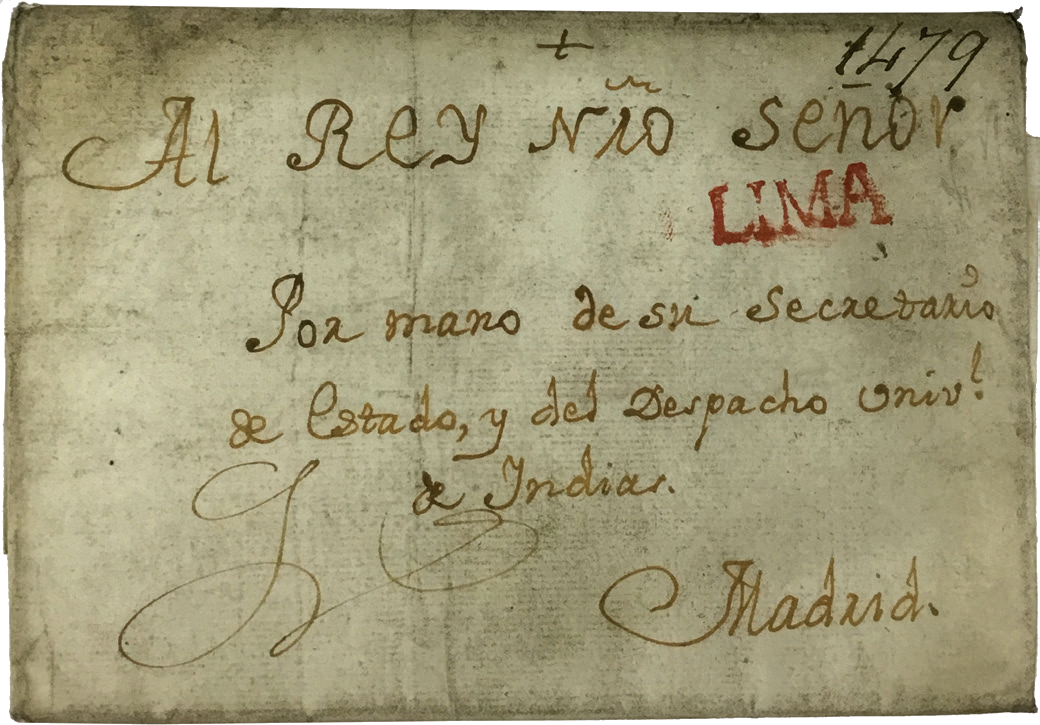 +
1479
Al REY Nr̃o Señor
LIMA
Por mano de su Secretario
de Estado, y del Despacho Univ.l
de Indias.
Madrid.